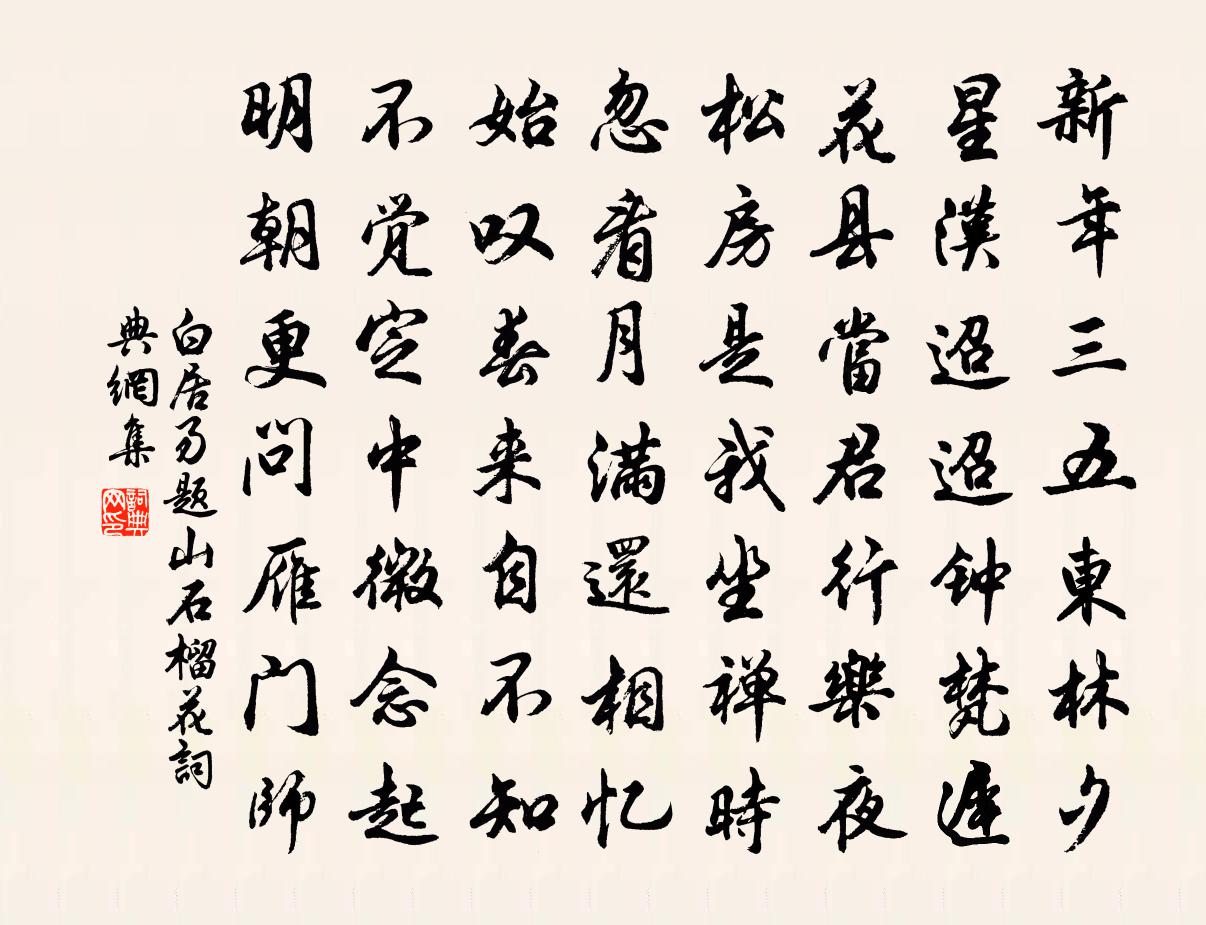 新年三五東林夕
星漢迢迢钟梵遲
花县當君行樂夜
松房是我坐禅時
忽看月滿還相忆
始叹春来自不知
不觉定中微念起
明朝更问雁门師
白居易题山石榴花詞
典網集
詞典网印